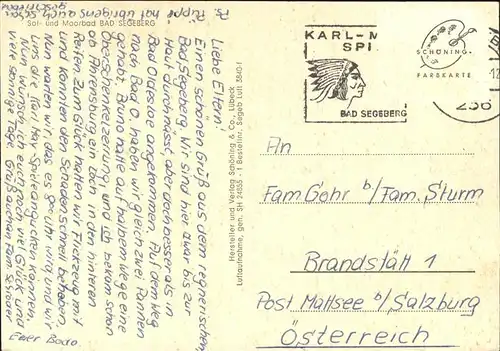 Ps. Puppe hat übrigens auch schon
Sol- und Moorbad BAD SEGEBERG
Liebe Eltern!
Einen schönen Gruß aus dem regnerischen
Bad Segeberg. Wir sind hier zwar bis zur
Haut durchnässt aber doch besser als in
Bad Oldesloe angekommen. Auf dem Weg
nach Bad O. haben wir gleich zwei Pannen
gehabt. Bruno hatte auf halbem Wege eine
Oberschenkelzerrung, und ich bekam schon
ab Ahrensburg ein Loch in den hinteren
Reifen. Zum Glück hatten wir Flickzeug mit
und konnten den Schaden schnell beheben.
Nun warten wir, das es schön wird und wir
uns die Karl May Spiele angucken können.
Nun wünsch ich euch noch viel Glück und
viele sonnige Tage. Gruß auch an Fam.
Euer Bodo.
Hersteller und Verlag Schöning & Co., Lübeck
Luftaufnahme, gen. SH 24855 - 1 Bestellnr. Segeb Luft 3840-1
KARL-M
SPI
BAD SEGEBERG
SCHÖNING
FARBKARTE
236
An
Fam Gohr b/Fam. Sturm
Brandstätt 1
Post Mattsee b/Salzburg
Österreich